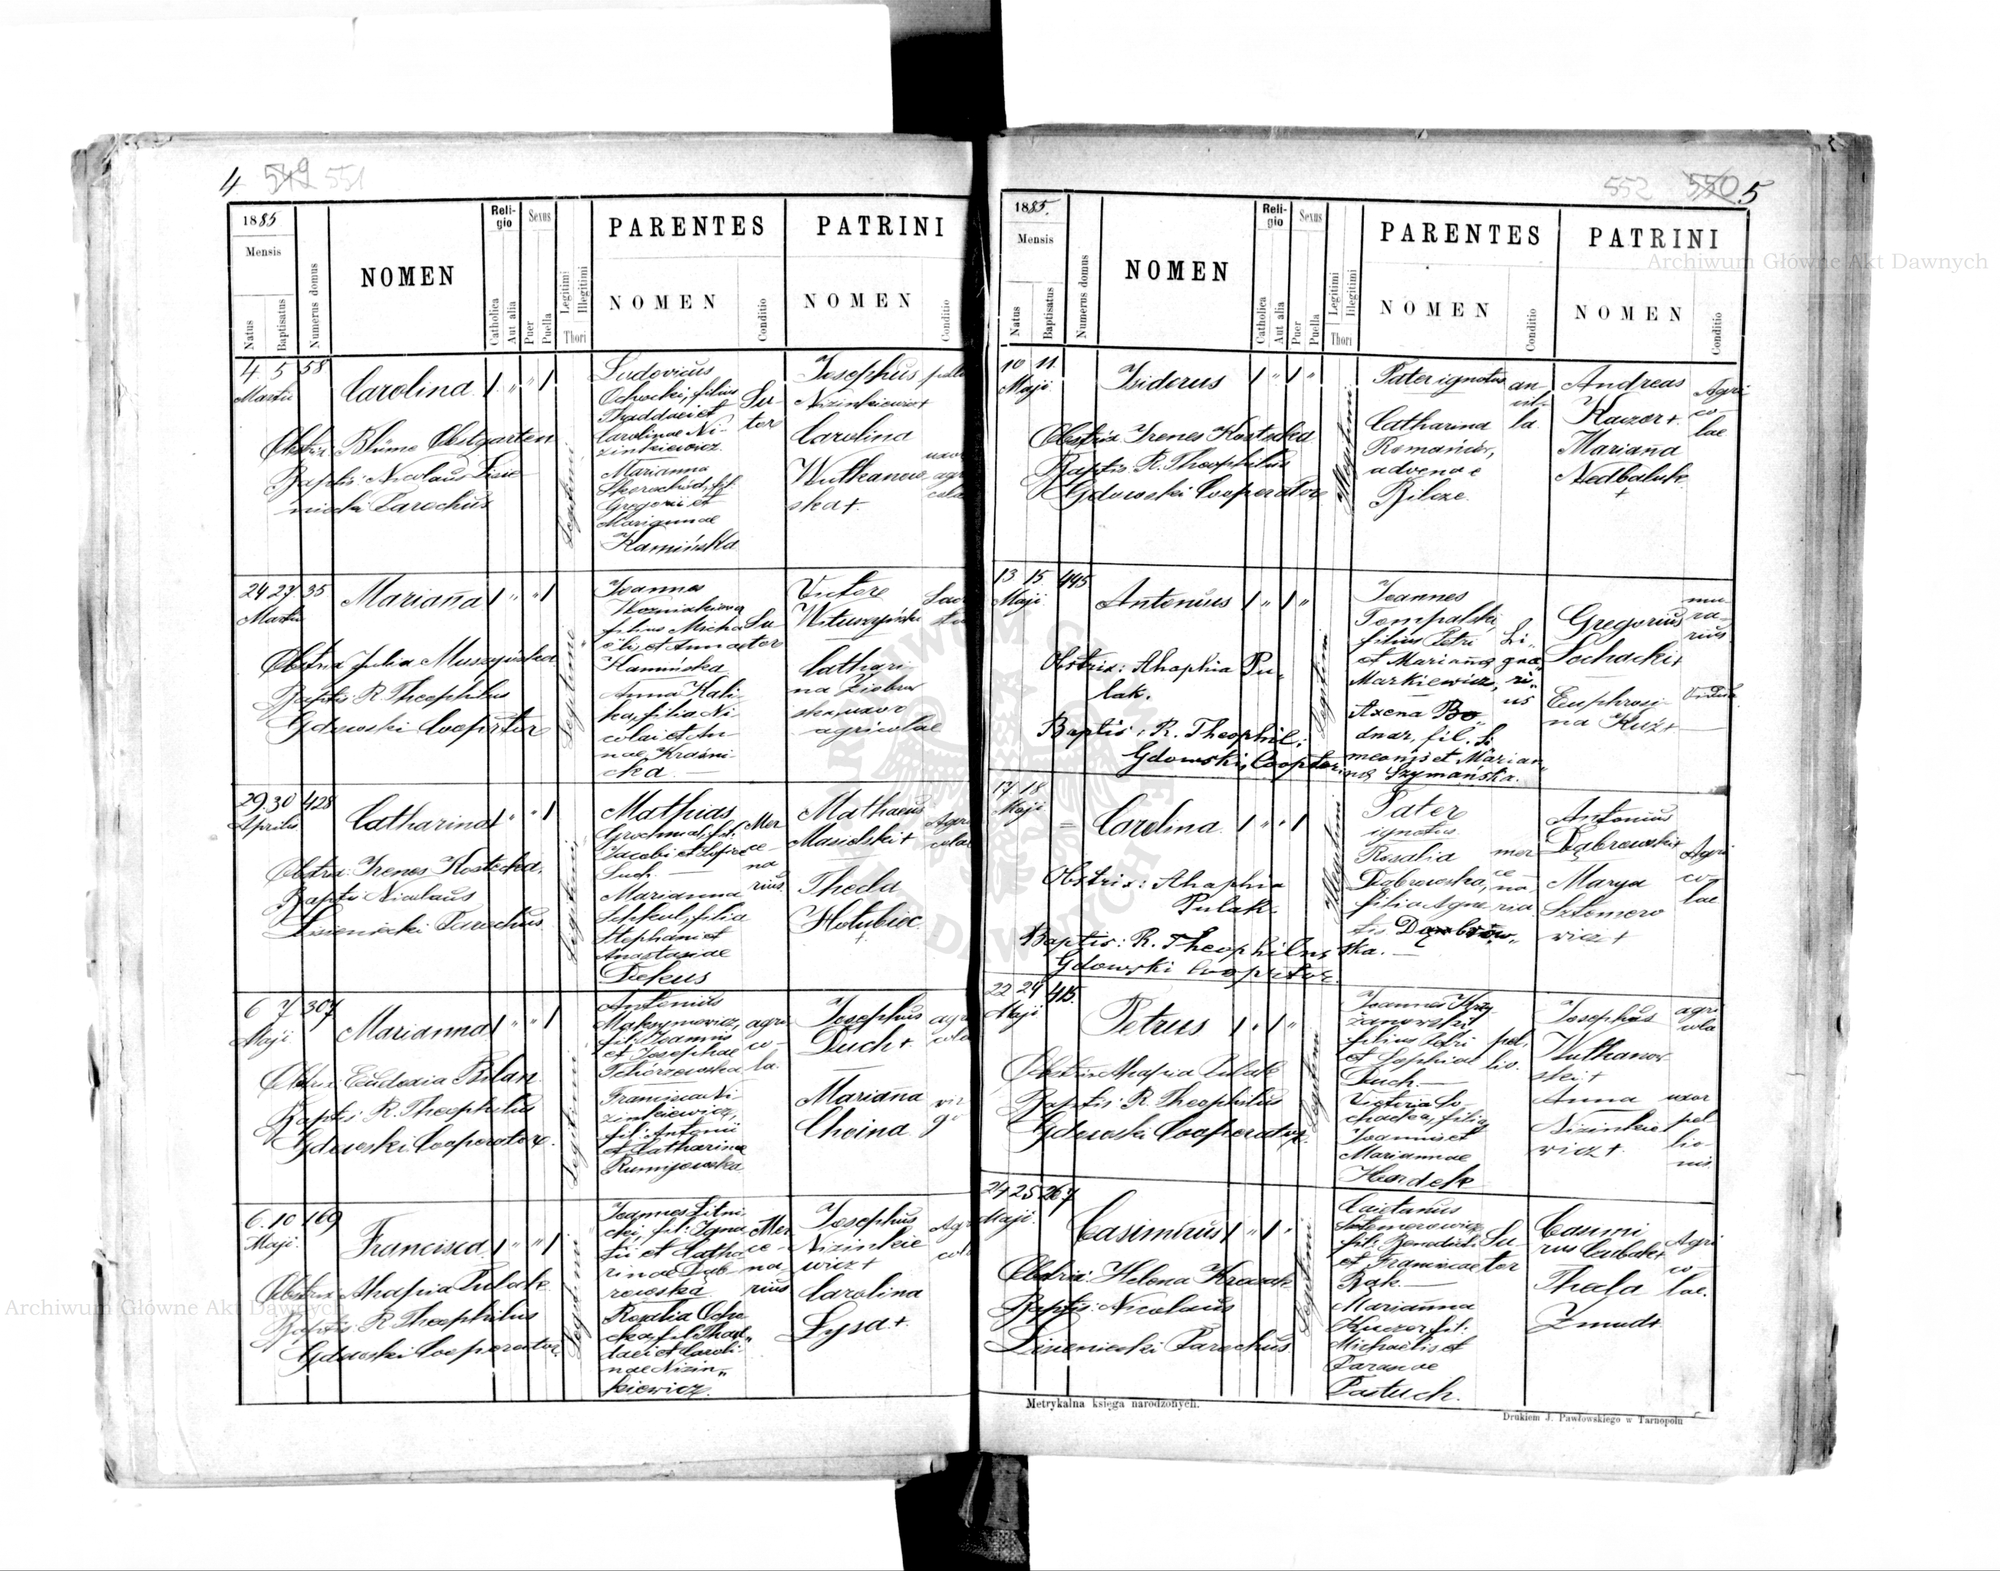 4 549 551
1885
Mensis
Natus
Baptisatus
Numerus domus
NOMEN
Religio
Catholica
Aut alia
Sexus
Puer
Puella
Legitimi
Illegitimi
Thori
PARENTES
NOMEN
Conditio
PATRINI
NOMEN
Conditio
4 5 58
Martii
Carolina
Obstrix Blüme Obstgarten
Baptis: Nicolaus Lisie
niecki Parochus
Legitimi
Ludovicus
Ochocki, filius
Thaddaei et
Carolinae Ni-
zinkiewicz
Marianna
fil.
Gregorii et
Mariannae
Kamińska
Su-
tor
Josephus
Nizinkiewicz+
Carolina
Wutkanow
ska+
24 27 35
Martii
Marianna
Obstrix Julia Muszyńska
Baptis R. Theophilus
Gdowski Cooprtor
Legitimi
Joannes
filius Micha
ëlis et Annae
Kamińska
Anna Kali-
ka, filia Ni-
colai et An-
nae Kraśni-
cka
Su
tor
Wituszyński
Cathari-
na Ziobrow
ska, uxor
agricolae
29. 30 428
Aprilis
Catharina
Obstrix: Irenes Kostecka,
Baptis Nicolaus
Lisieniecki Parochus
Legitimi
Mathias
Grochmal, fil.
Jacobi et Sofiae
Such.
Marianna
filia
Stephani et
Anastasiae
Dekus
Mer
ce-
na
rius
Mathaeus
Masielski+
Thecla
Hołubiec
+
Agri
colae
6 7 307
Maji
Marianna
Obstrix: Eudoxia Bilan
Baptis: R. Theophilus
Gdowski Cooperator.
Legitimi
Antonius
Maksymowicz,
fil: Joannis
et Josephae
Tchórzewska
Francisca Ni-
zinkiewicz,
fil: Antonii
et Catharinae
Rumijowska
agri
co-
la
Josephus
Duch+
Marianna
Choina
agri
cola
vir
go
6. 10 169
Maji
Francisca
Obstrix Ahapia Pulak
Baptis R. Theophilus
Gdowski Cooperator.
Legitimi
Joannes Litni-
cki, fil: Igna
tii et Catha
rinae Dąb-
rowska
Rosalia Ocho
cka fil. Thad"
daei et Caroli
nae Nizin"
kiewicz
Mer
ce-
na
rius
Josephus
Nizinkie
wicz+
Carolina
Łysa+
552 550 5
1885.
Mensis
Natus
Baptisatus
Numerus domus
NOMEN
Religio
Catholica
Aut alia
Sexus
Puer
Puella
Legitimi
Illegitimi
Thori
PARENTES
NOMEN
Conditio
PATRINI
NOMEN
Conditio
10 11
Maji
Isidorus
Obstrix Irenes Kostecka
Baptis: R. Theophilus
Gdowski Cooperator
Illegitimi
Pater ignotus
Catharina
Romańców,
advenae
Bilcze.
an-
cil-
la.
Andreas
Kaczor+
Marianna
Nedbaluk
+
Agri
co-
lae
13 15. 445
Maji
Antonius
Obstrix: Ahaphia Pu-
lak.
Baptis, R. Theophil:
Gdowski, Cooptor
Legitimi
Joannes
Tompalski
filius Petri
et Mariannae
Markiewicz,
Axena Bo-
dnar, fil. Si
meonis et Marian-
nae Szymańska.
Li-
gna-
ri-
us
Gregorius
Sochacki+
Euphrosi-
na Kuź+
mu-
ra-
rius
Vidua
17 18
Maji
=
Carolina
Obstrix: Ahaphia
Pulak.
Baptis: R. Theophilus
Gdowski Cooprtor.
Illegitimi
Pater
ignotus
Rosalia
Dąbrowska,
filia Agne
tis Dąbrow,
ska. —
mer
ce-
na,
ria
Antonius
Dąbrowski+
Marya
Sztemero
wicz+
Agri
co-
lae
22 24 415
Maji
Petrus
Obstrix Ahapia Pulak
Baptis: R. Theophilus
Gdowski Cooperator.
Legitimi
Joannes Krzy
żanowski
filius Petri
et Sophiae
Duch. —
Victoria So-
chacka, filia
Joannis et
Mariannae
Herdek
pel,
lio.
Josephus
Wutkanow
ski+
Anna
Nizinkie
wicz+
agri
cola
uxor
pel-
lio-
nis
24 25 267
Maji.
Casimirus
Obstrix: Helena Krawak
Baptis: Nicolaus
Lisieniecki Parochus.
Legitimi
Caietanus
Sztemerowicz
fil: Benedicti
et Franciscae
Bąk. —
Marianna
Kaczor fil:
Michaelis et
Paranae
Pastuch.
Su-
tor
Casimi
rus
Thecla
Zmud+
Agri
co-
lae.
Metrykalna księga narodzonych.
Drukiem J. Pawłowskiego w Tarnopolu
Archiwum Główne Akt Dawnych
Archiwum Główne Akt Dawnych
ARCHIWUM GŁÓWNE AKT DAWNYCH